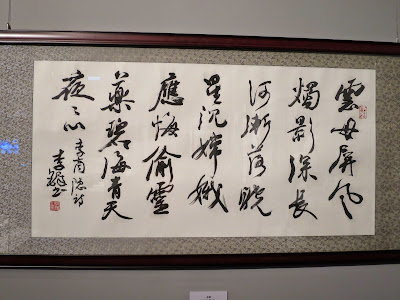 雲母屏風
燭影深長
河漸落曉
星沉嫦娥
應悔偷靈
藥碧海青天
夜々心
李商隱詩
李